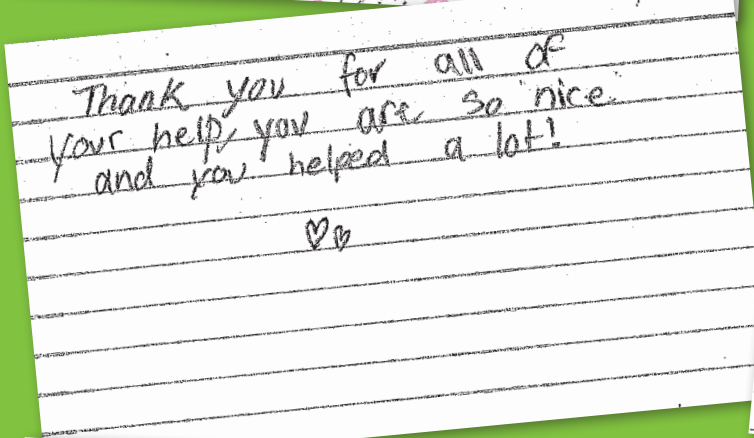 Thank you for all of
your help, you are so nice.
and you helped a lot!